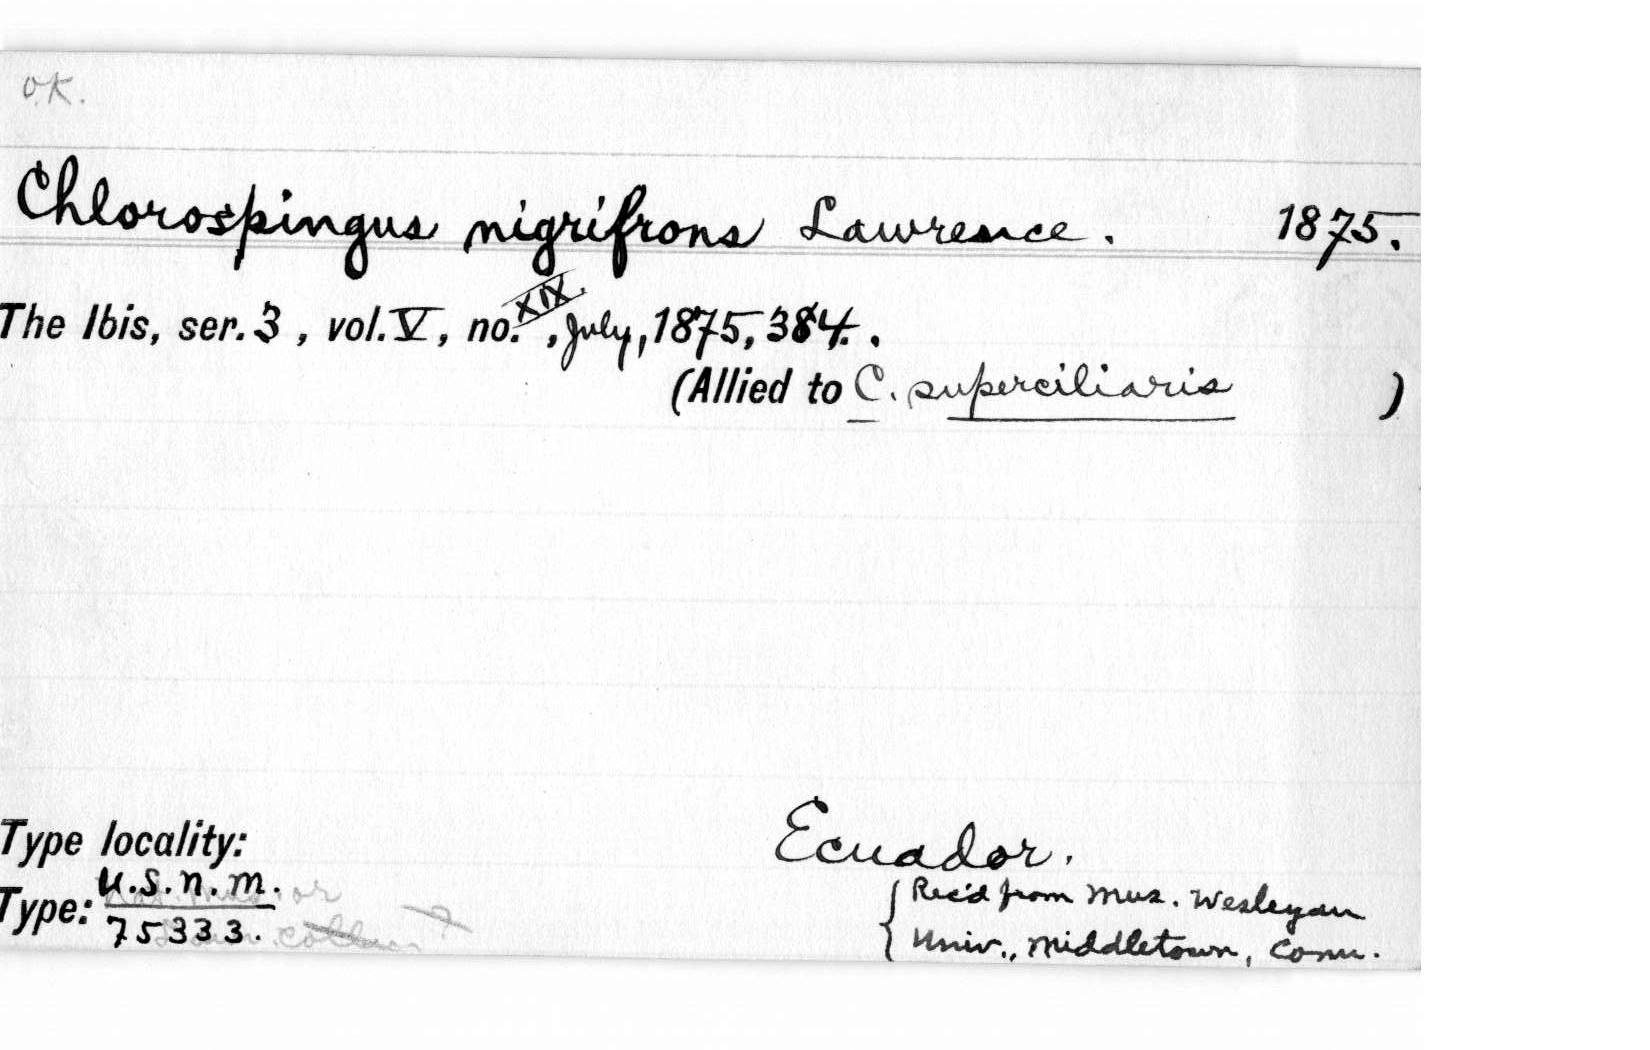 O.K.
Chlorospingus nigrifrons Lawrence. 1875.
The Ibis, ser. 3, vol. V, no. XIX., July, 1875, 384.
(Allied to C. superciliaris )
Type locality: Ecuador.
Type: U.S.N.M. Rec'd from Mus. Wesleyan
75333. Univ., Middletown, Conn.